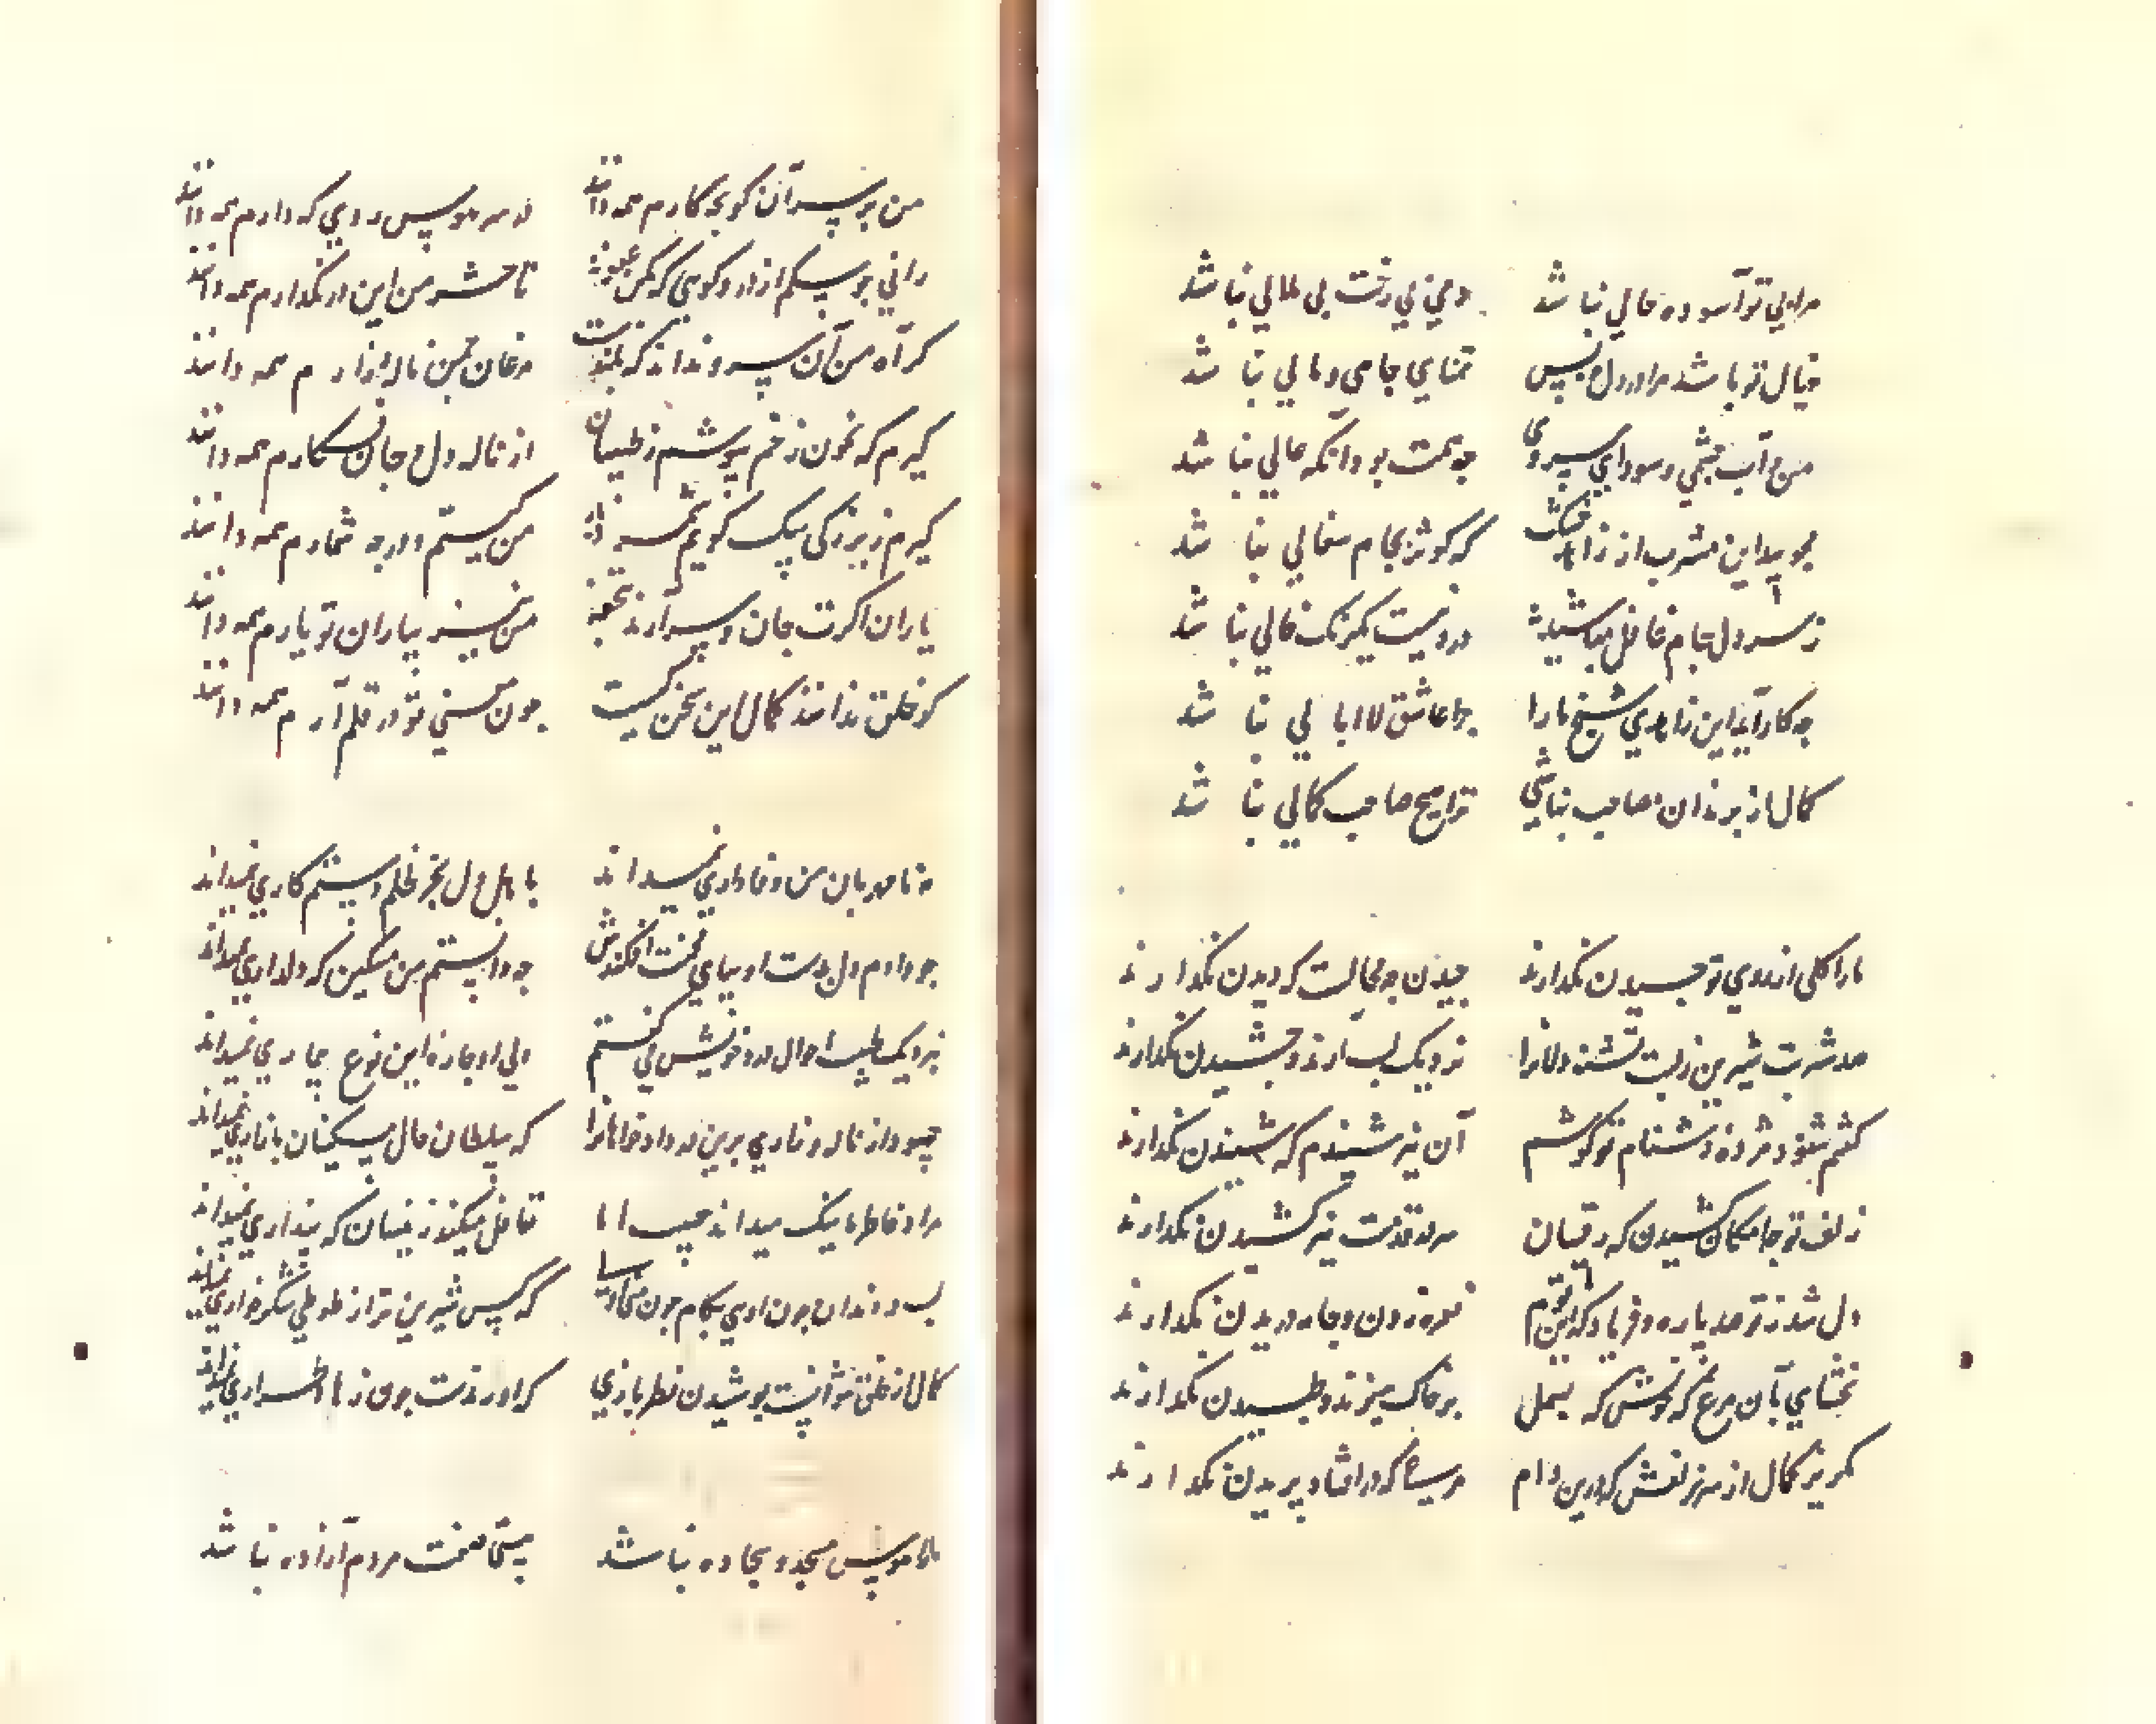 مرا بی تو آسوده حالی نباشد دمی بی رخت بی ملالی نباشد
خیال تو باشد مرا در دل و بس تمنای جاهی و مالی نباشد
من و آب چشمی و سودای سروی چه همت بود آنکه عالی نباشد
مجویید این مشرب از زاهد خشک که کوثر بجام سفالی نباشد
ز سر دل جام غافل مباشید درونیست یکرنک خالی نباشد
چه کار آید این زاهدی شیخ ما را چرا عاشق لاابالی نباشد
کمال ار برندان مصاحب نباشی ترا هیچ صاحب کمالی نباشد
ما را کلی از روی تو چیدن نکذارند چیدن چه خیالست که دیدن نکذارند
صد شربت شیرین ز لبت تشنه دلانرا نزدیک لب آرند و چشیدن نکذارند
کفتم شنود مژده دشنام تو کوشم آن نیز شنیدم که شنیدن نکذارند
زلف تو چه امکان کشیدن که رقیبان سر در قدمت نیز کشیدن نکذارند
دل شد ز تو صد پاره و فریاد که این قوم نعره زدن و جامه دریدن نکذارند
بخشای بر آن مرغ که خونش که بسمل بر خاک بریزند و طپیدن نکذارند
مکریز کمال از سر زلفش که درین دام مرغی که در افتاد پریدن نکذارند
من بر سر آن کو بچه کارم همه دانند در سر هوس روی که دارم همه دانند
رانی بر سنکم از در و کویی که مکن تا حشر من این در نکذارم همه دانند
کر آه من آن سرو نداند که بلندست مرغان چمن ناله زارم همه دانند
کیرم که نمون زخم بپوشم ز طبیبان از ناله دل و جان فکارم همه دانند
کیرم ز بزرکی سک کویم نشمرد من کیستم و در چه شمارم همه دانند
یاران اکرت جان و سر آرند بتحفه من نیز بیاران تو یارم همه دانند
کو خلق ندانند کمال این سخن کیست چون حسن تو در قلم آرم همه دانند
مه نامهربان من وفاداری نمیداند با اهل دل بجز ظلم و ستمکاری نمیداند
چو دادم دل بدست او بپای محنت افکندش چه دانستم من مسکین که دلداری نمیداند
بنزدیک طبیب احوال درد خویش بی کفتم ولی او چاره این نوع بیماری نمیداند
چه سود از ناله و زاری برین در دادخواهانرا که سلطان حال مسکینان بازاری نمیداند
مراد خاطر ما نیک میداند حبیب اما تغافل میکند ز ینسان که پنداری نمیداند
لب و دندان چون اویی بکام چون منی اولی که کس شیرین تر از طوطی شکرخواری نمیداند
کمال از خلق نتوانست پوشیدن نظربازی که او رندست و چون زهاد طراری نمیداند
ما را هوس مسجد و سجاده نباشد هستی صفت مردم آزاده نباشد